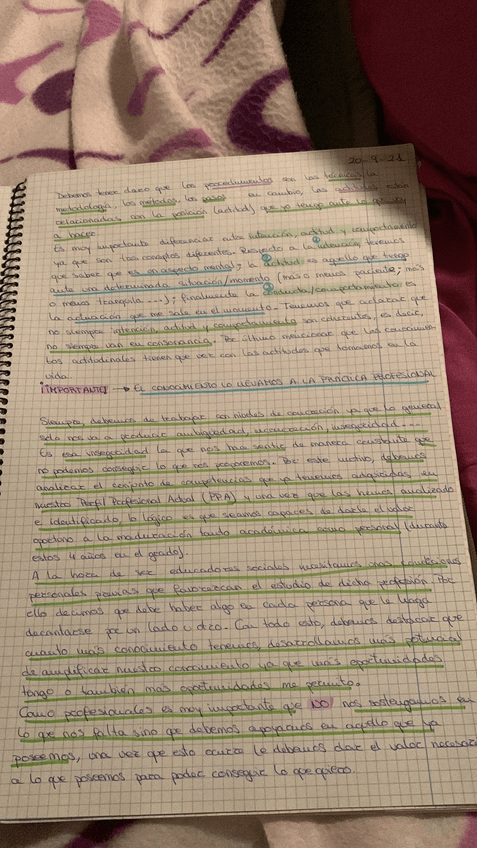 20-9-21
Debemos tener claro que los procedimientos son las técnicas, la
metodología, los métodos, los pasos en cambio, las actitudes están
relacionadas con la posición (actitud) que yo tengo ante lo que voy
a hacer.
Es muy importante diferenciar entre intención, actitud y comportamiento
ya que son tres conceptos diferentes. Respecto a la intención, tenemos
que saber que es un aspecto mental; la actitud es aquello que tengo
ante una determinada situación/momento (más o menos paciente; más
o menos tranquila ...); finalmente la conducta/comportamiento es
la actuación que me sale en el momento. Tenemos que aclarar que
no siempre intención, actitud y comportamiento son coherentes, es decir,
no siempre van en consonancia. Por último mencionar que los
actitudinales tienen que ver con las actitudes que tomamos en la
vida.
¡IMPORTANTE! → EL CONOCIMIENTO LO LLEVAMOS A LA PRÁCTICA PROFESIONAL
Siempre, debemos de trabajar con niveles de concreción ya que lo general
solo nos va a producir ambigüedad, inseguridad...
Es esa inseguridad la que nos hace sentir de manera constante que
no podemos conseguir lo que nos proponemos. Por este motivo, debemos
analizar el conjunto de competencias que ya tenemos adquiridas en
nuestro Perfil Profesional Actual (PPA) y una vez que las hemos analizado
e identificado, lo lógico es que seamos capaces de darle el valor
oportuno a la maduración tanto académica como personal (durante
estos 4 años en el grado).
A la hora de ser educadoras sociales necesitamos unas condiciones
personales previas que favorezcan el estudio de dicha profesión. Por
ello decimos que debe haber algo en cada persona que le haga
decantarse por un lado u otro. Con todo esto, debemos destacar que
cuanto más conocimiento tenemos, desarrollamos más potencial
de amplificar nuestro conocimiento ya que más oportunidades
tengo o también más oportunidades me permito.
Como profesionales es muy importante que NO nos sostengamos en
lo que nos falta sino que debemos apoyarnos en aquello que ya
poseemos, una vez que esto ocurre le debemos dar el valor necesario
a lo que poseemos para poder conseguir lo que quiero.